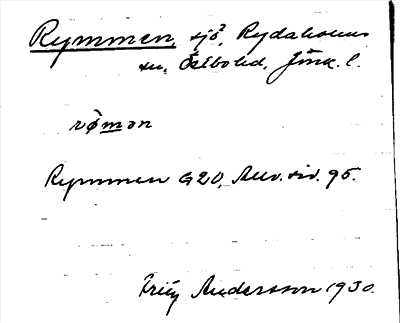 Rymmen, sjö, Rydaholms
sn, Östbo hd, Jönk. l.
rømən
Rymmen G20, Alv. siv. 95.
Andersson 1930.